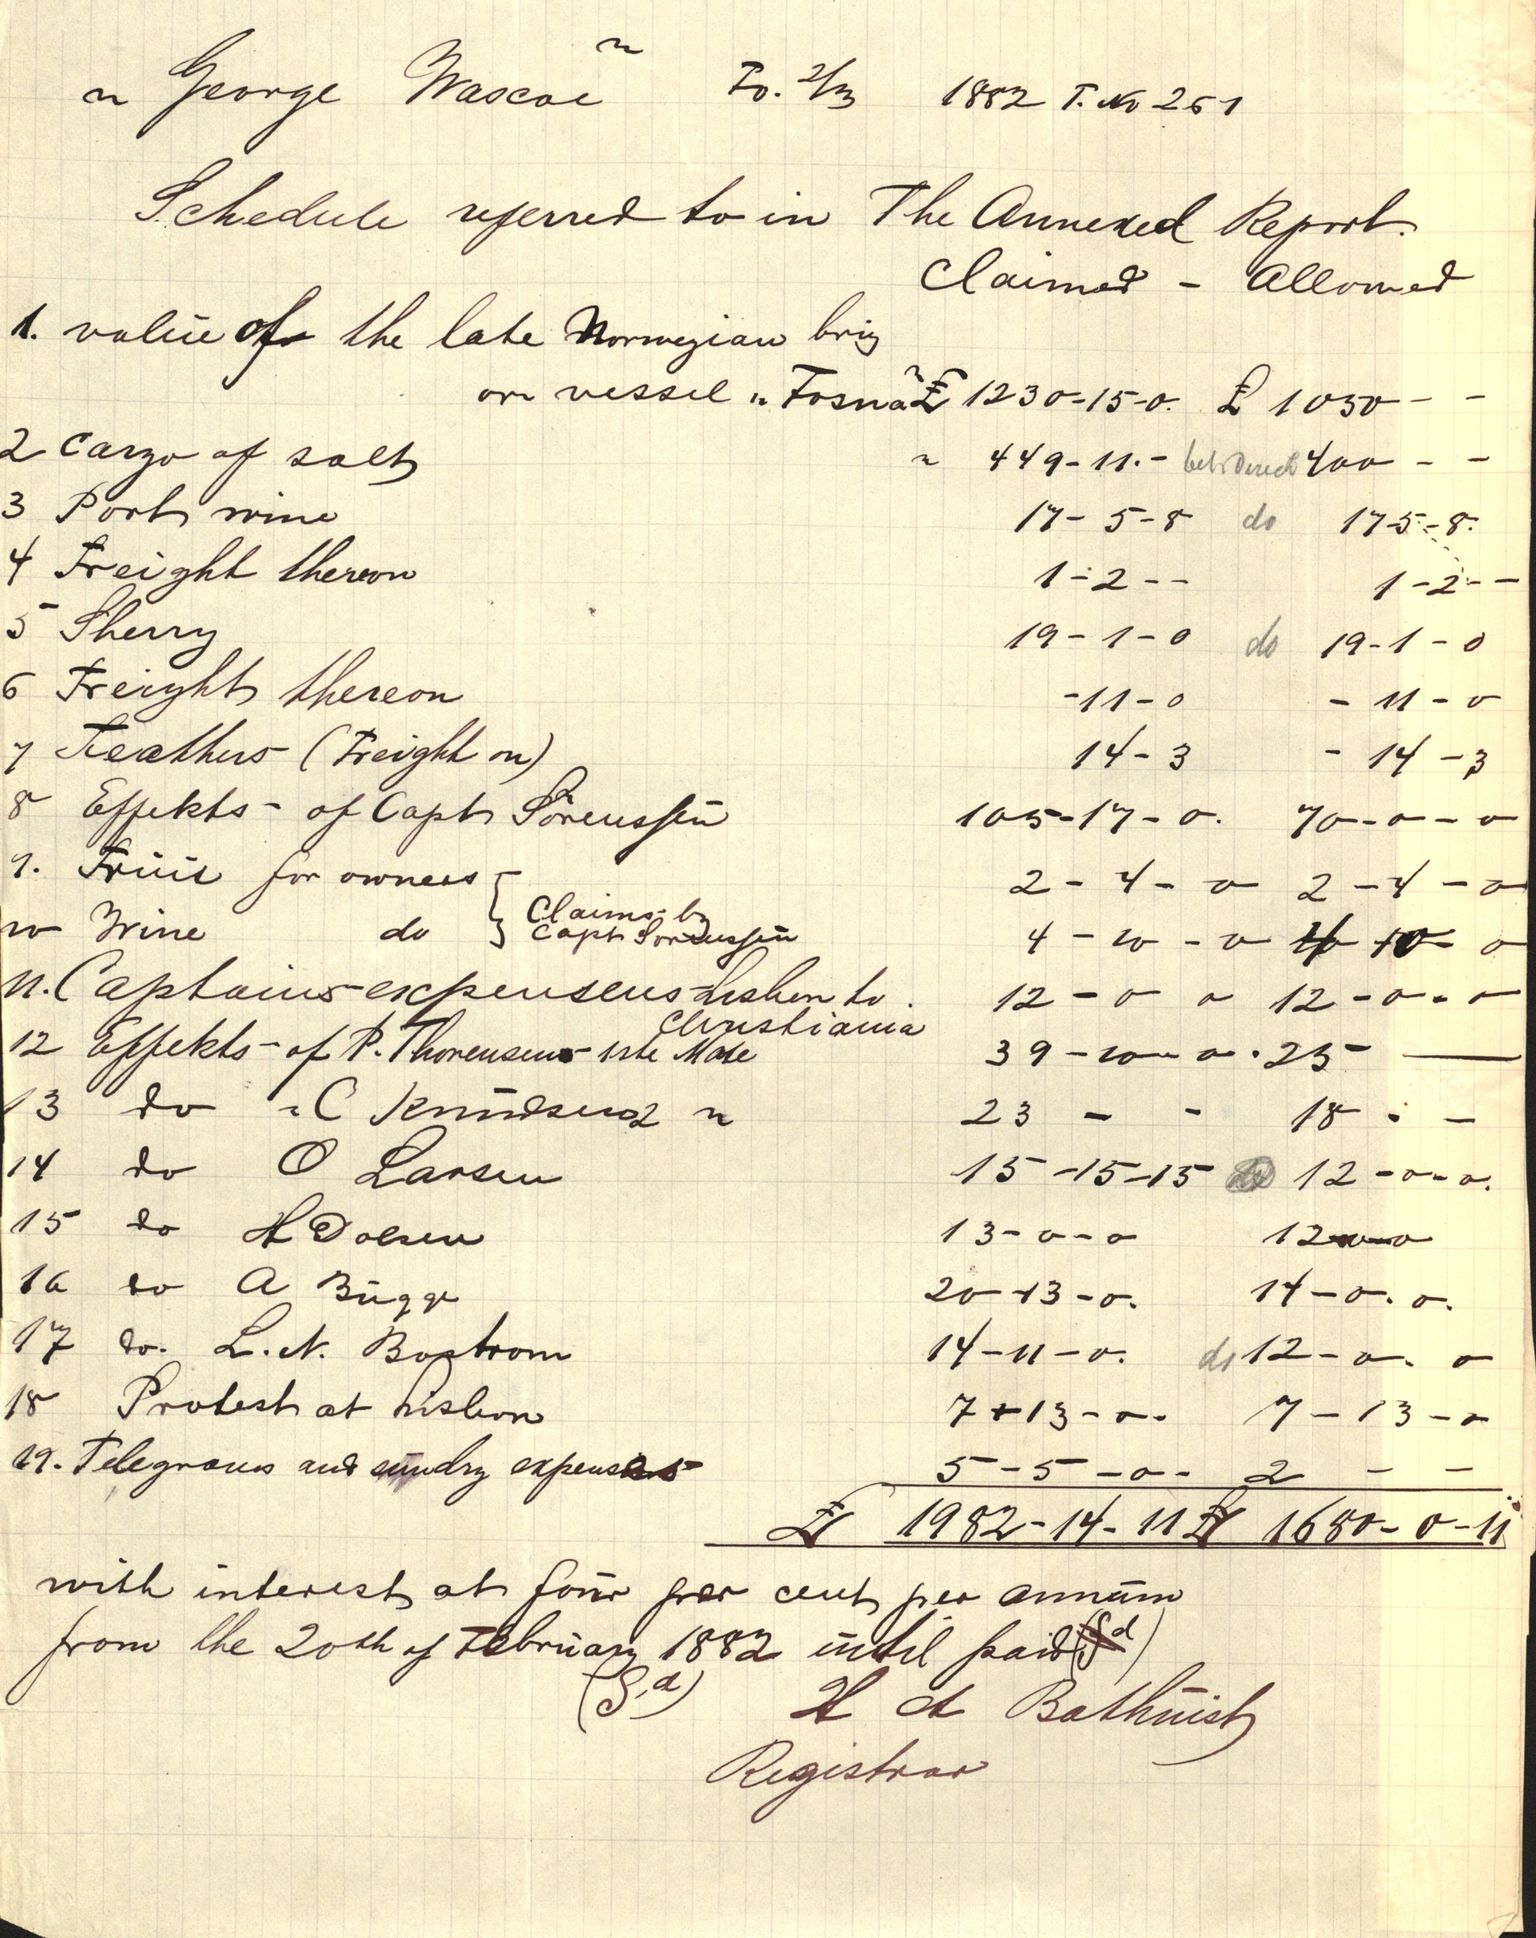 " George Wascoe " Fo. 2/3 1882 T. No 261
Schedule referred to in The Annexed Report.
Claimed - Allowed
1. value of the late Norwegian brig
or vessel "Fosna" £ 1230-15-0. £ 1050 - -
2 Cargo of salt " 449-11.- 400 - -
3 Port wine 17-5-8 do 17-5-8.
4 Freight thereon 1-2-- 1-2--
5 Sherry 19-1-0 do 19-1-0
6 Freight thereon -11-0 -11-0
7 Feathers (Freight on) 14-3 - 14-3
8 Effekts- of Capt Sörenssen 105-17-0. 70-0-0
9. Fruit for owners 2-4-0 2-4-0
10 Wine do { Claims by Capt Sörenssen 4-10-0 4 10-0
11. Captains expensens Lisbon to Christiania 12-0 0 12-0-0
12 Effekts- of P. Thorensens 1ste Mate 39-10-0. 25 —
13 do " C Knudsen 2 " 23 - - 18 . -
14 do O Larsen 15-15-15 12-0-0.
15 do H Dolsen 13-0-0 12-0-0
16 do A Bugge 20-13-0. 14-0. 0.
17 do. L. N. Bostrom 14-11-0. do 12-0. 0
18 Protest at Lisbon 7-13-0. 7-13-0
19. Telegrams and sundry expenses 5-5-0- 2 - -
£ 1982-14-11 £ 1680-0-11
with interest at four per cent per annum
from the 20th of February 1882 until paid (Sd)
(Sd) H A Bathurst
Registrar